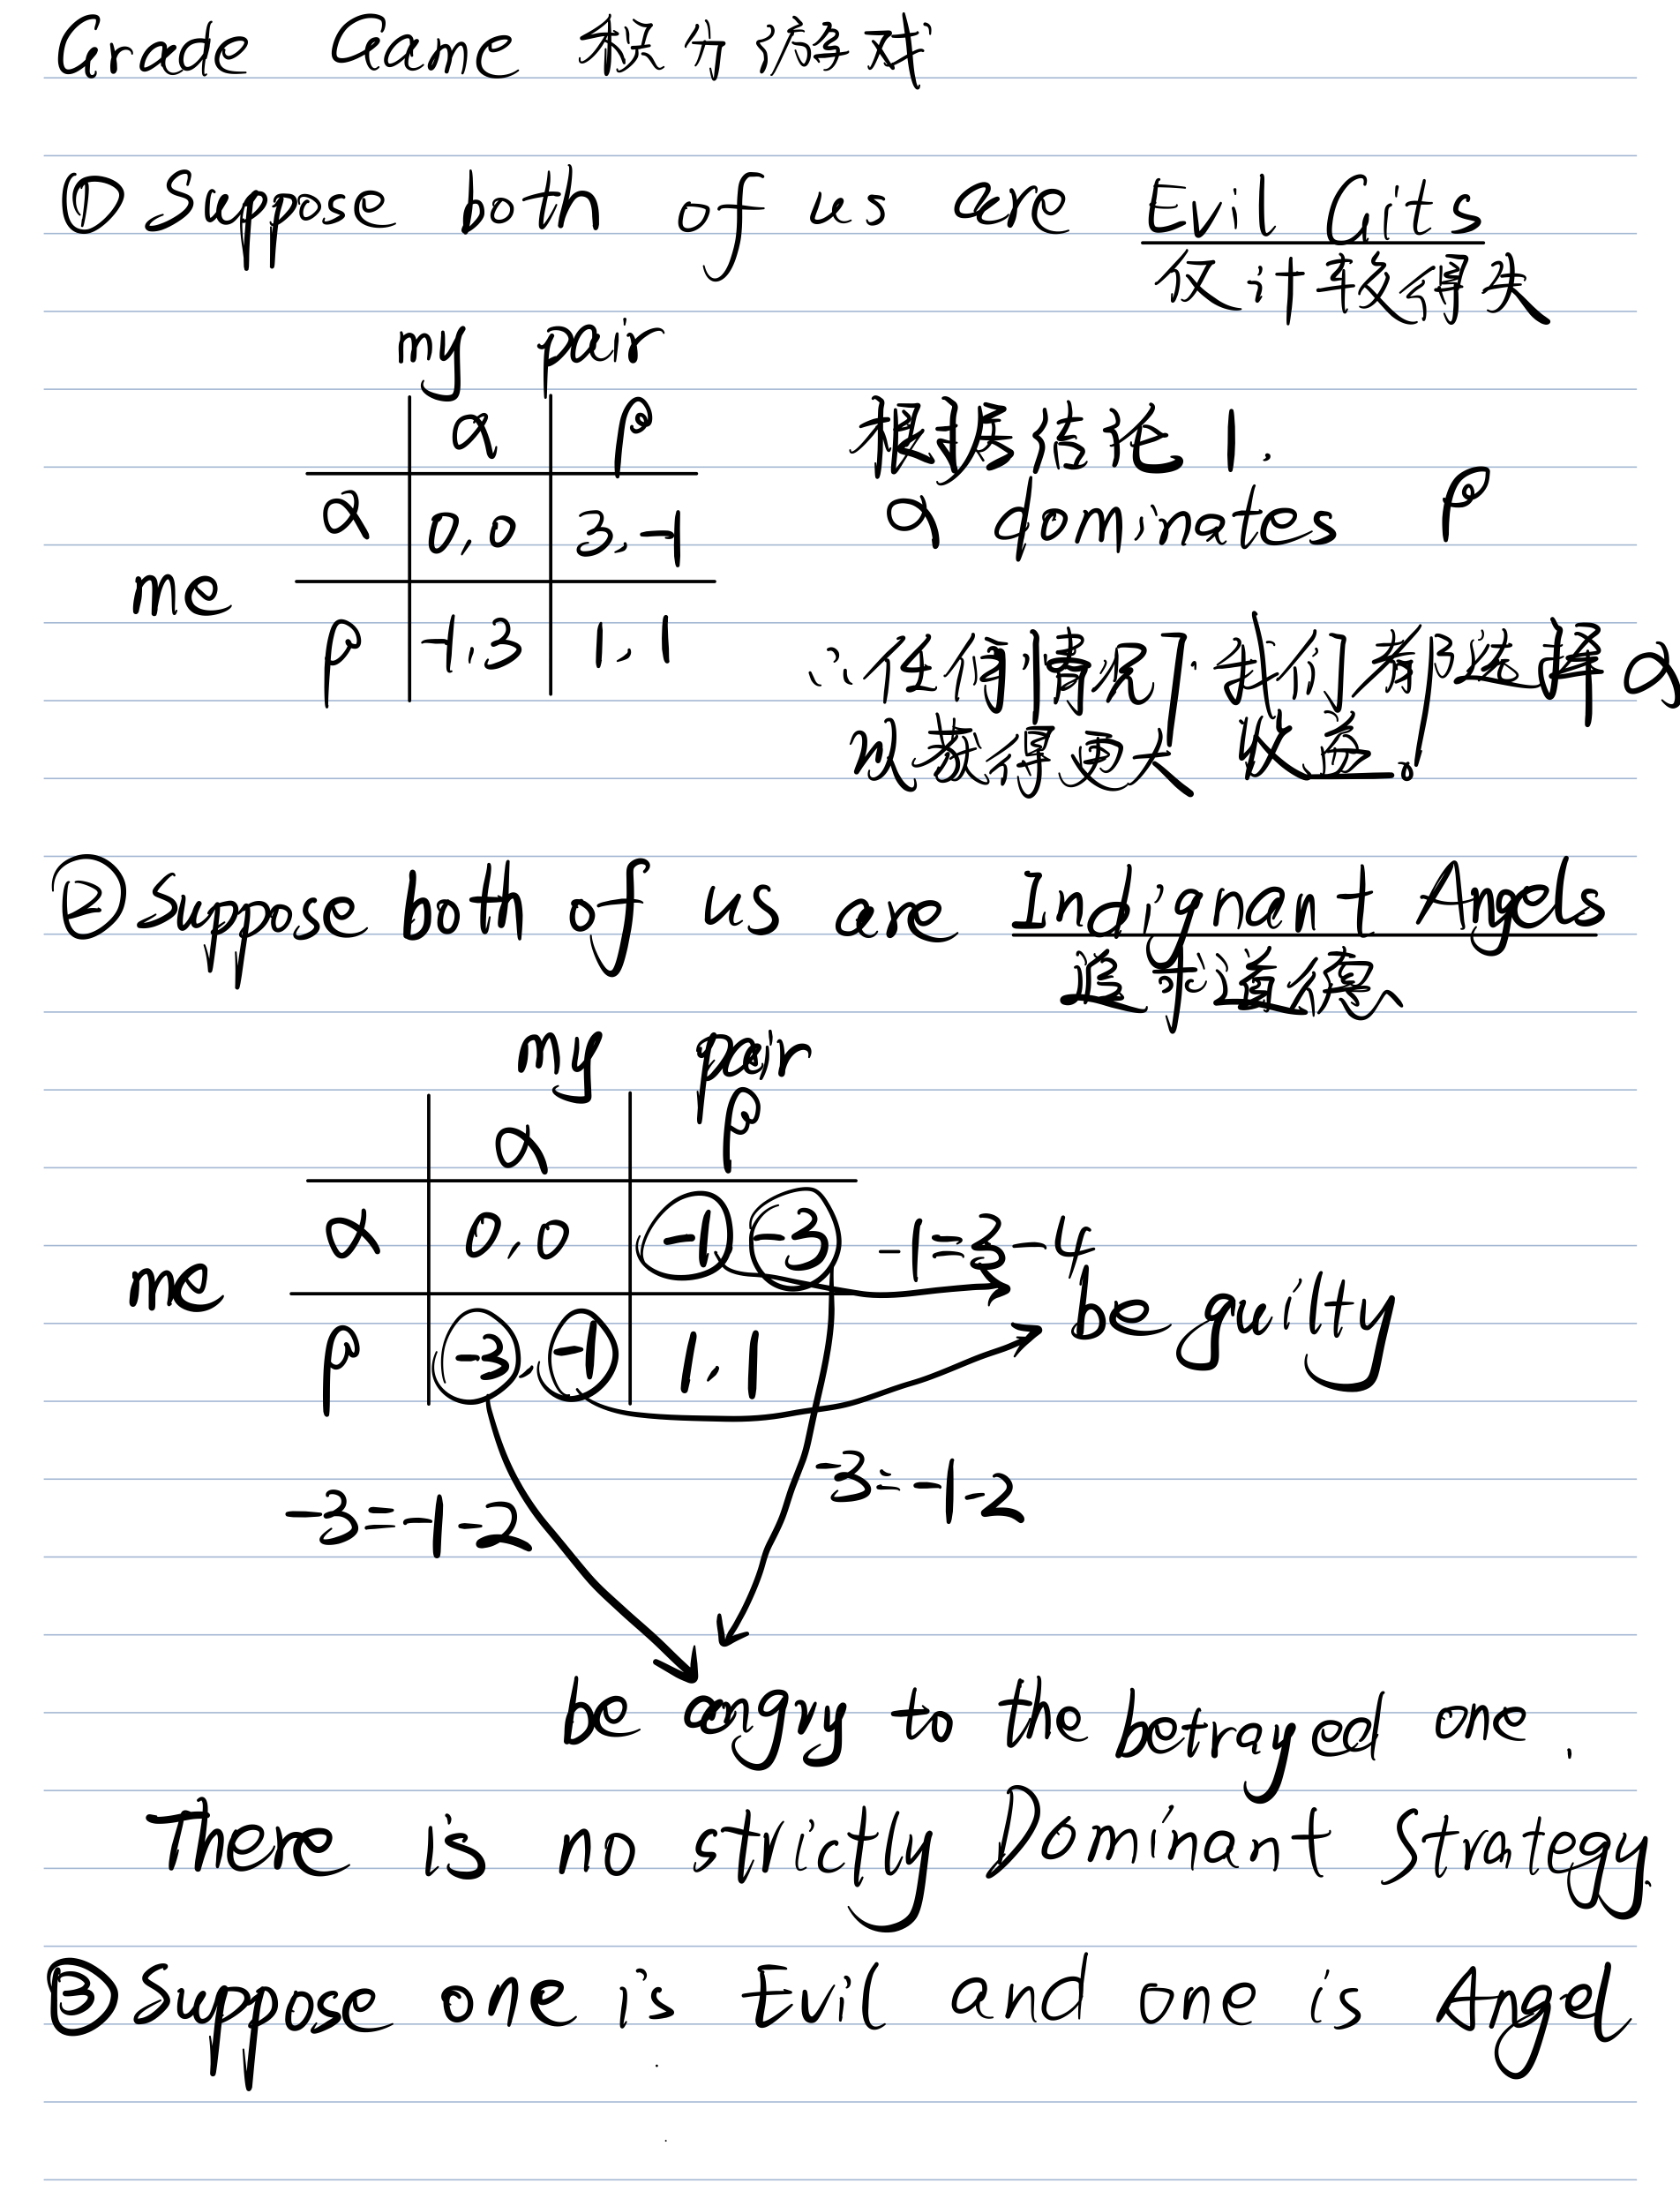 Grade Game 积分游戏
① Suppose both of us are Evil Gits
仅计较得失
my pair
α β
α 0,0 3,-1
me
β -1,3 1,1
根据结论1.
α dominates β
∴任何情况下,我们都选择α
以获得更大收益。
② Suppose both of us are Indignant Angels
追求道德
my pair
α β
α 0,0 -1 -3 -1=3-4
me be guilty
β -3,-1 1,1
-3=-1-2
-3=-1-2
be angry to the betrayed one.
There is no strictly Dominant Strategy.
③ Suppose one is Evil and one is Angel